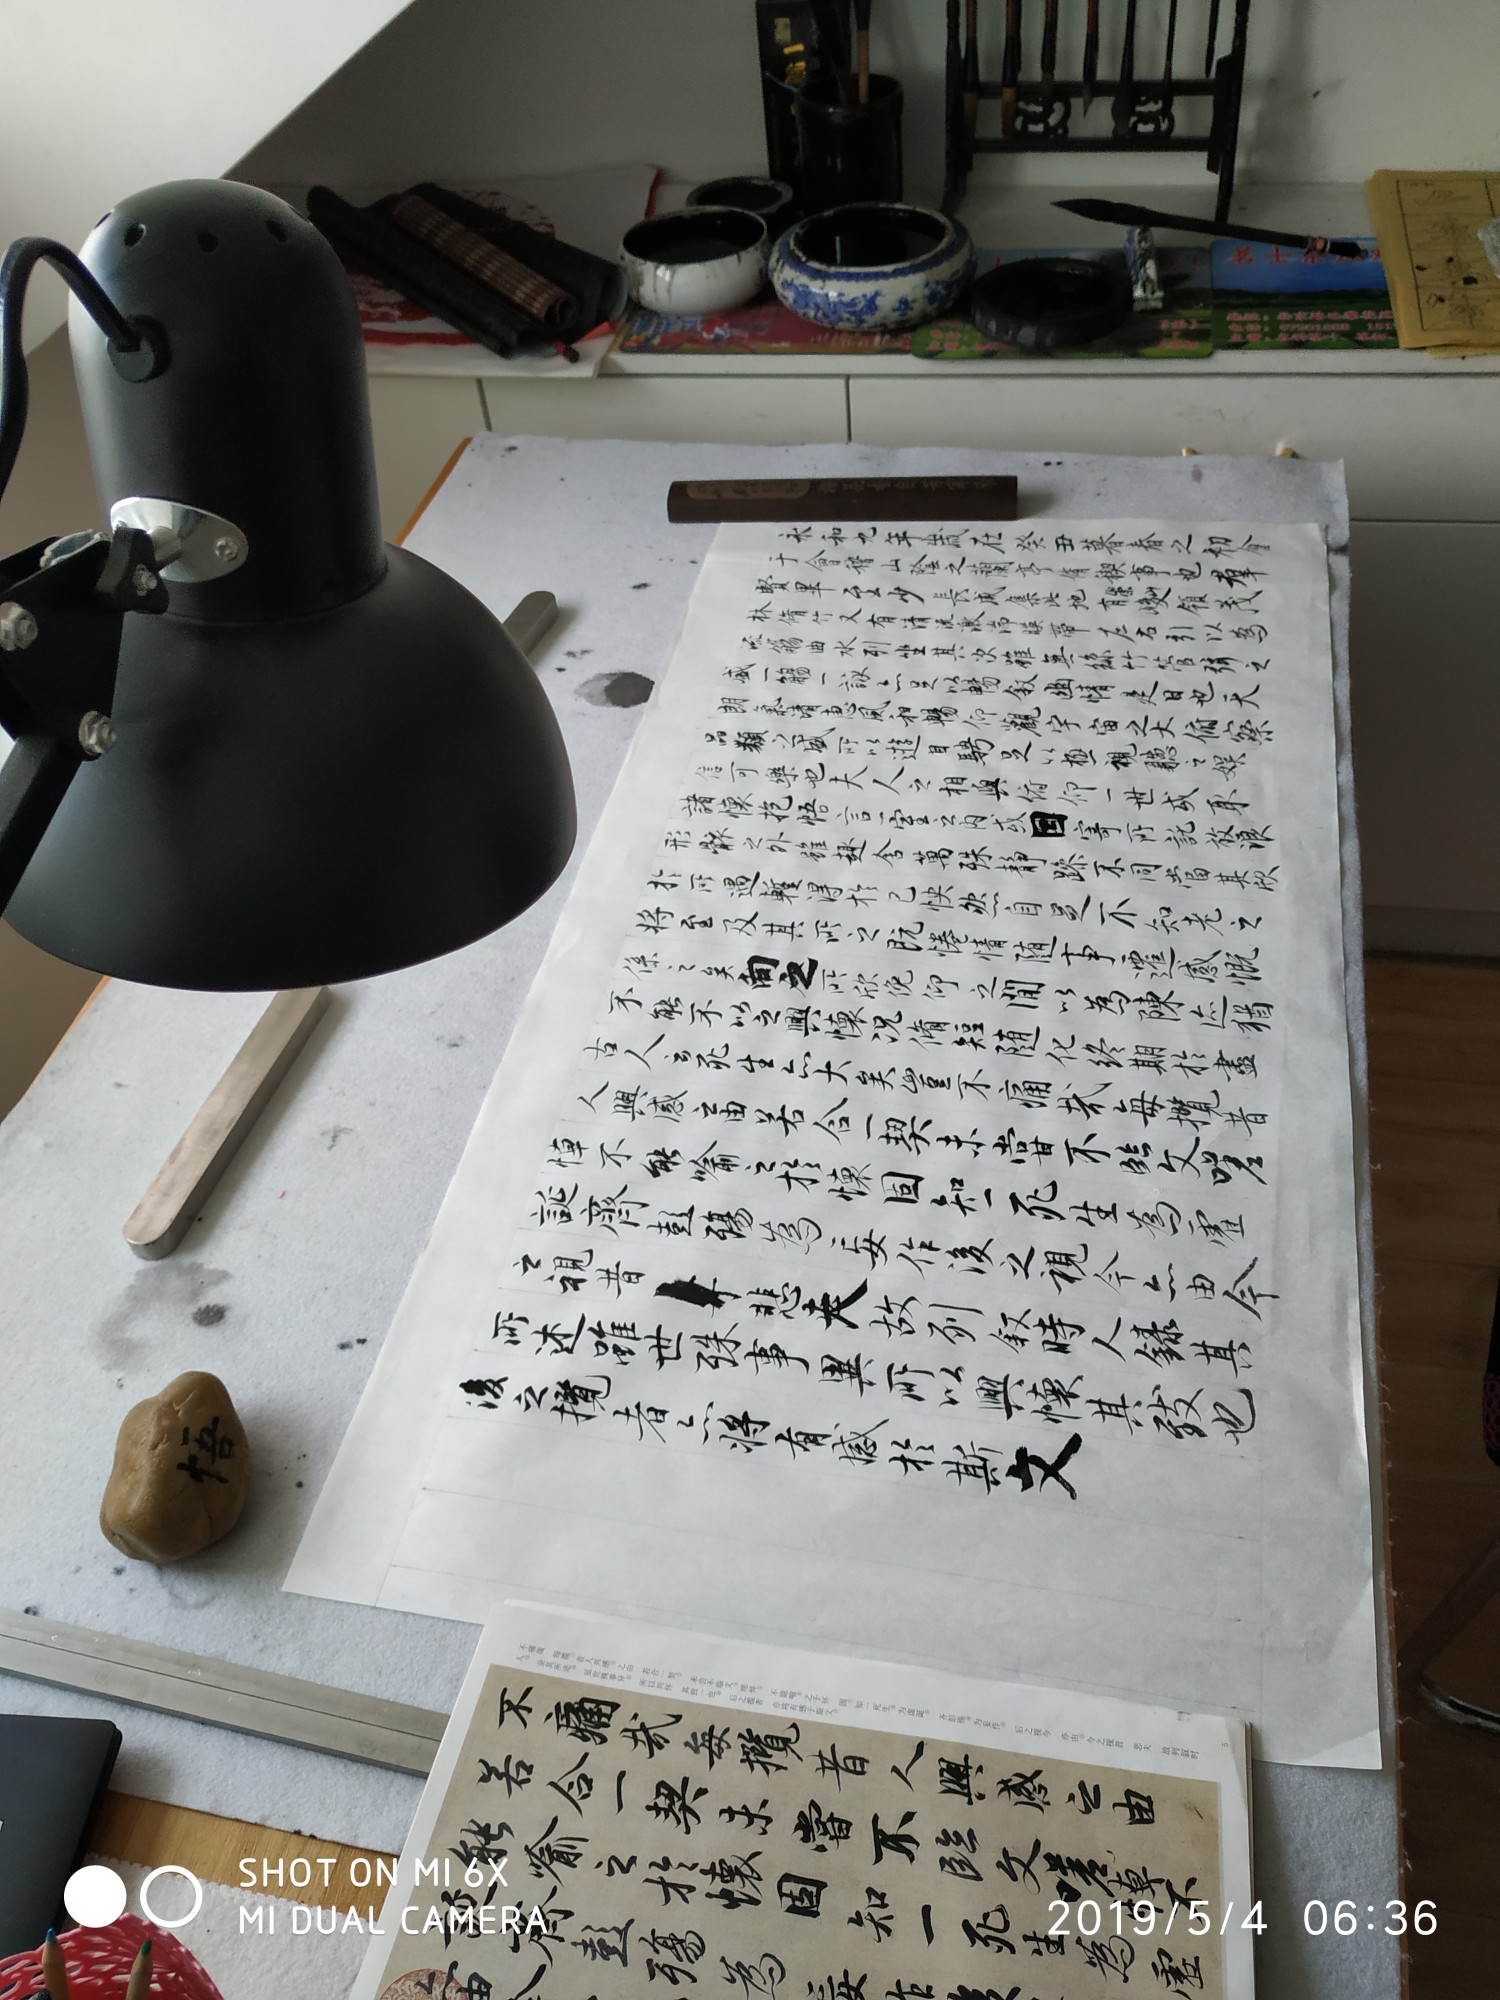 永和九年歲在癸丑暮春之初會
于會稽山陰之蘭亭脩禊事也羣
賢畢至少長咸集此地有峻領茂
林脩竹又有清流激湍暎帶左右引以為
流觴曲水列坐其次雖無絲竹管弦之
盛一觴一詠亦足以暢敘幽情是日也天
朗氣清惠風和暢仰觀宇宙之大俯察
品類之盛所以遊目騁足以極視聽之娛
信可樂也夫人之相與俯仰一世或取
諸懷抱悟言一室之內或因寄所託放浪
形骸之外雖趣舍萬殊靜躁不同當其欣
於所遇輒得於己快然自足不知老之
將至及其所之既惓情隨事遷感慨
係之矣向之所欣俛仰之間以為陳迹猶
不能不以之興懷況脩短隨化終期於盡
古人云死生亦大矣豈不痛哉每攬昔
人興感之由若合一契未嘗不臨文嗟
悼不能喻之於懷固知一死生為虛
誕齊彭殤為妄作後之視今亦由今
之視昔悲夫故列敘時人錄其
所述雖世殊事異所以興懷其致也
後之攬者亦將有感於斯文
悟
不痛哉每攬昔人興感之由
若合一契未嘗不臨文嗟悼不
能喻之於懷固知一死生為虛
SHOT ON MI 6X
MI DUAL CAMERA
2019/5/4 06:36